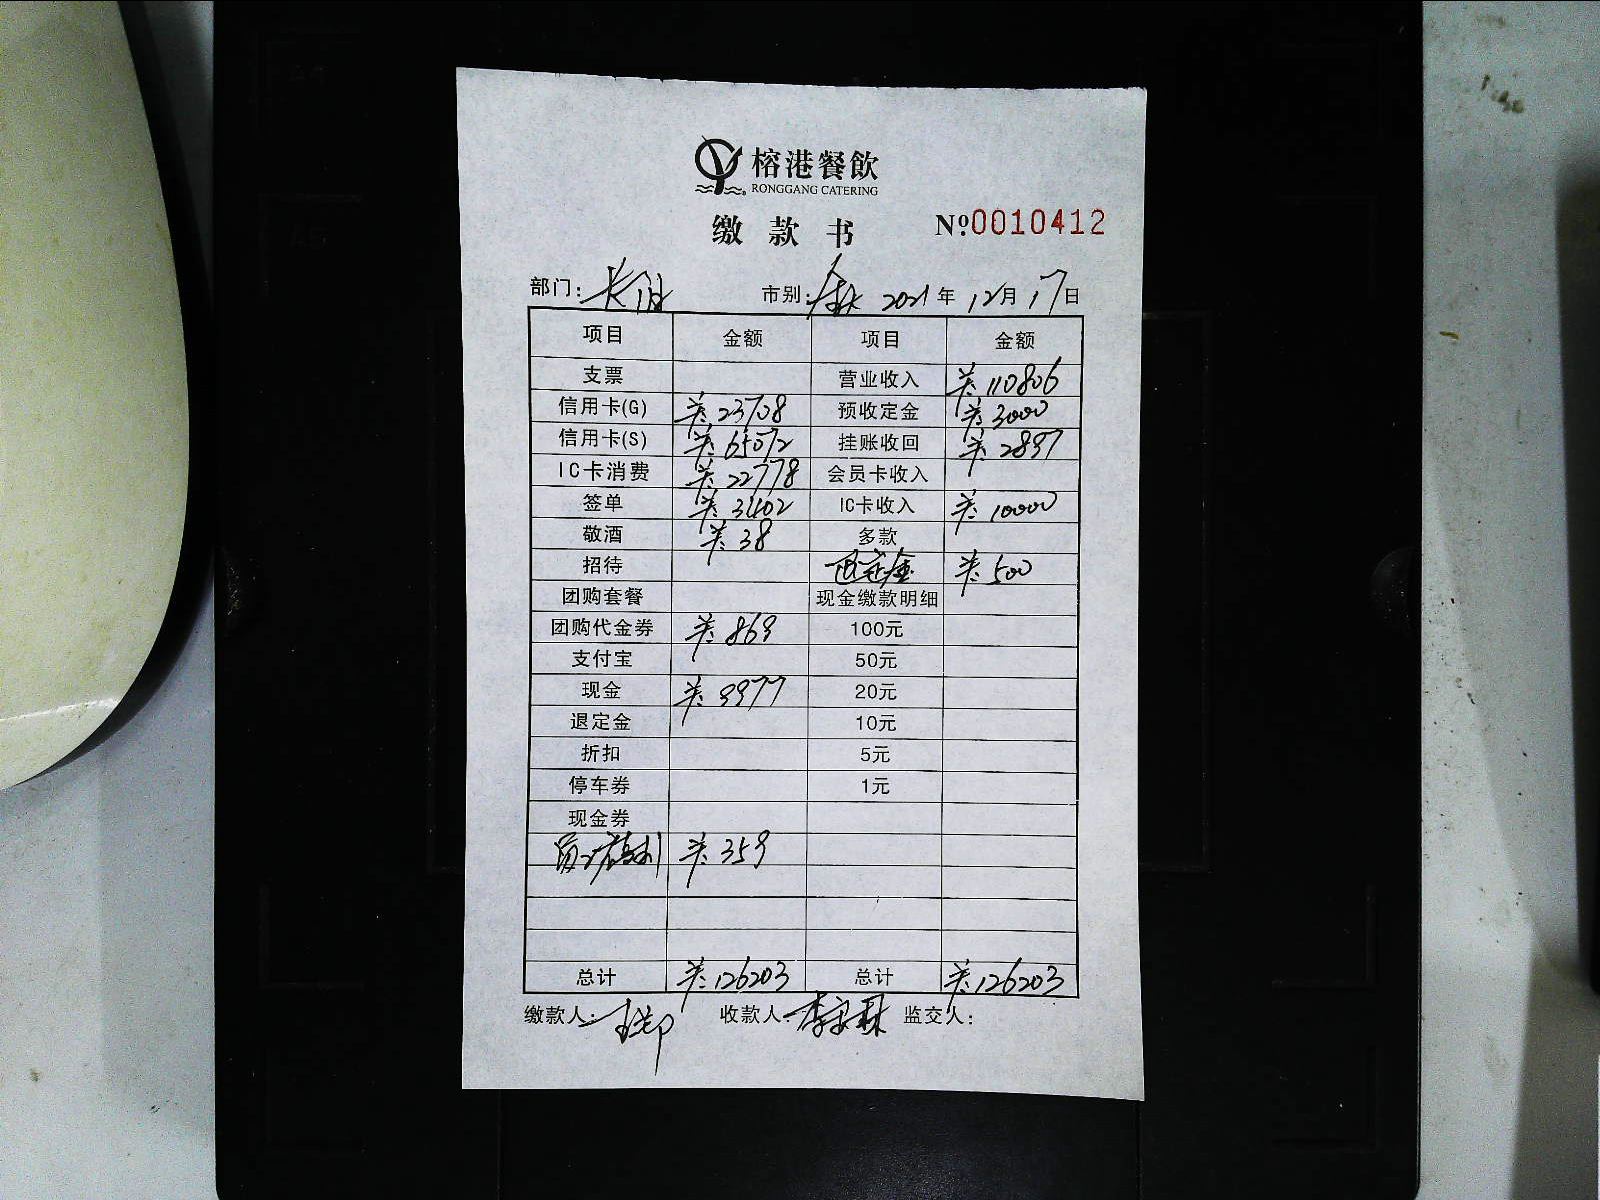 榕港餐飲
RONGGANG CATERING
缴款书 №0010412
部门: 市别: 2021年12月17日
项目 金额 项目 金额
支票 营业收入 ¥:110806
信用卡(G) ¥:23708 预收定金 ¥:3000
信用卡(S) ¥:65072 挂账收回 ¥:2897
IC卡消费 ¥:22778 会员卡收入
签单 ¥:3402 IC卡收入 ¥:10000
敬酒 ¥:38 多款
招待 退定金 ¥:500
团购套餐 现金缴款明细
团购代金券 ¥:869 100元
支付宝 50元
现金 ¥:9977 20元
退定金 10元
折扣 5元
停车券 1元
现金券
¥:359
总计 ¥:126203 总计 ¥:126203
缴款人: 收款人: 监交人: